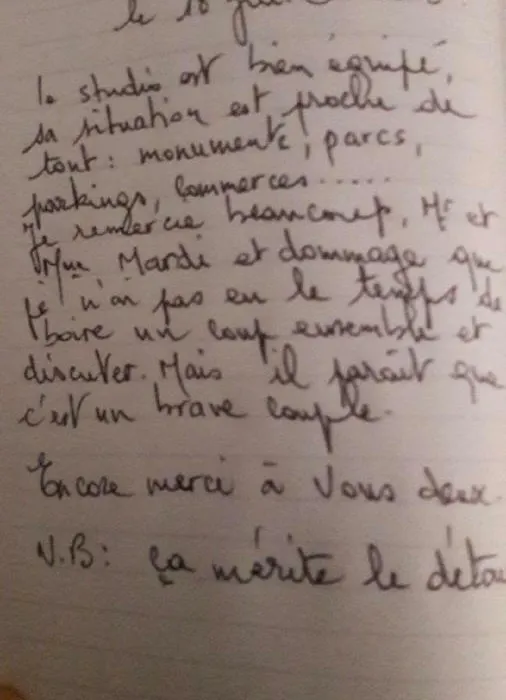 le 18
le studio est bien équipé,
sa situation est proche de
tout : monuments, parcs,
parkings, commerces.....
Je remercie beaucoup, Mr et
Mme Mardi et dommage que
je n'ai pas eu le temps de
boire un coup ensemble et
discuter. Mais il paraît que
c'est un brave couple.
Encore merci à Vous deux.
N.B : ça mérite le détou